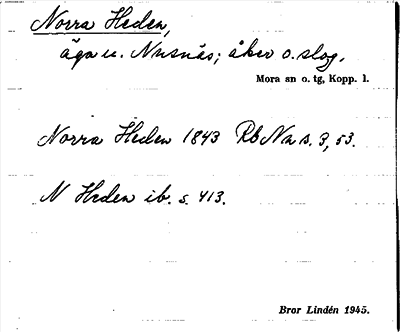 Norra Heden,
äga u. Nusnäs; åker o. slog.
Mora sn o. tg, Kopp. l.
Norra Heden 1843 Rb Nu s. 3, 53.
N Heden ib. s. 413.
Bror Lindén 1945.